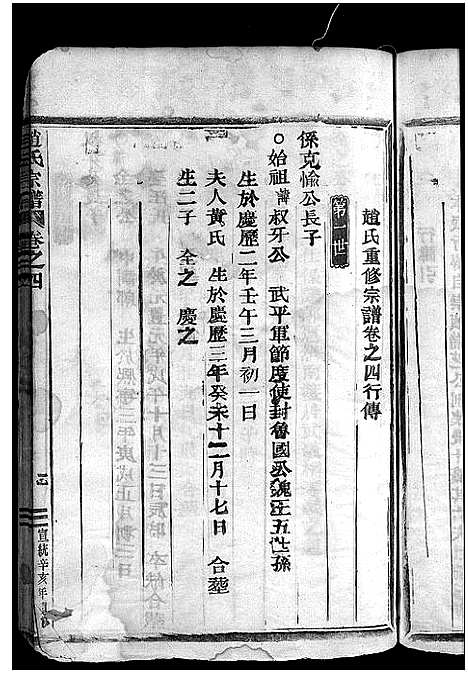 趙氏重修宗譜卷之四行傳
第一世
係克愉公長子
○始祖諱叔牙公　武平軍節度使封魯國公魏王五世孫
生於慶歷二年壬午三月初一日
夫人黃氏　生於慶歷三年癸未十二月十七日　合塟
生二子　全之　慶之
趙氏宗譜　卷之四
宣統辛亥年